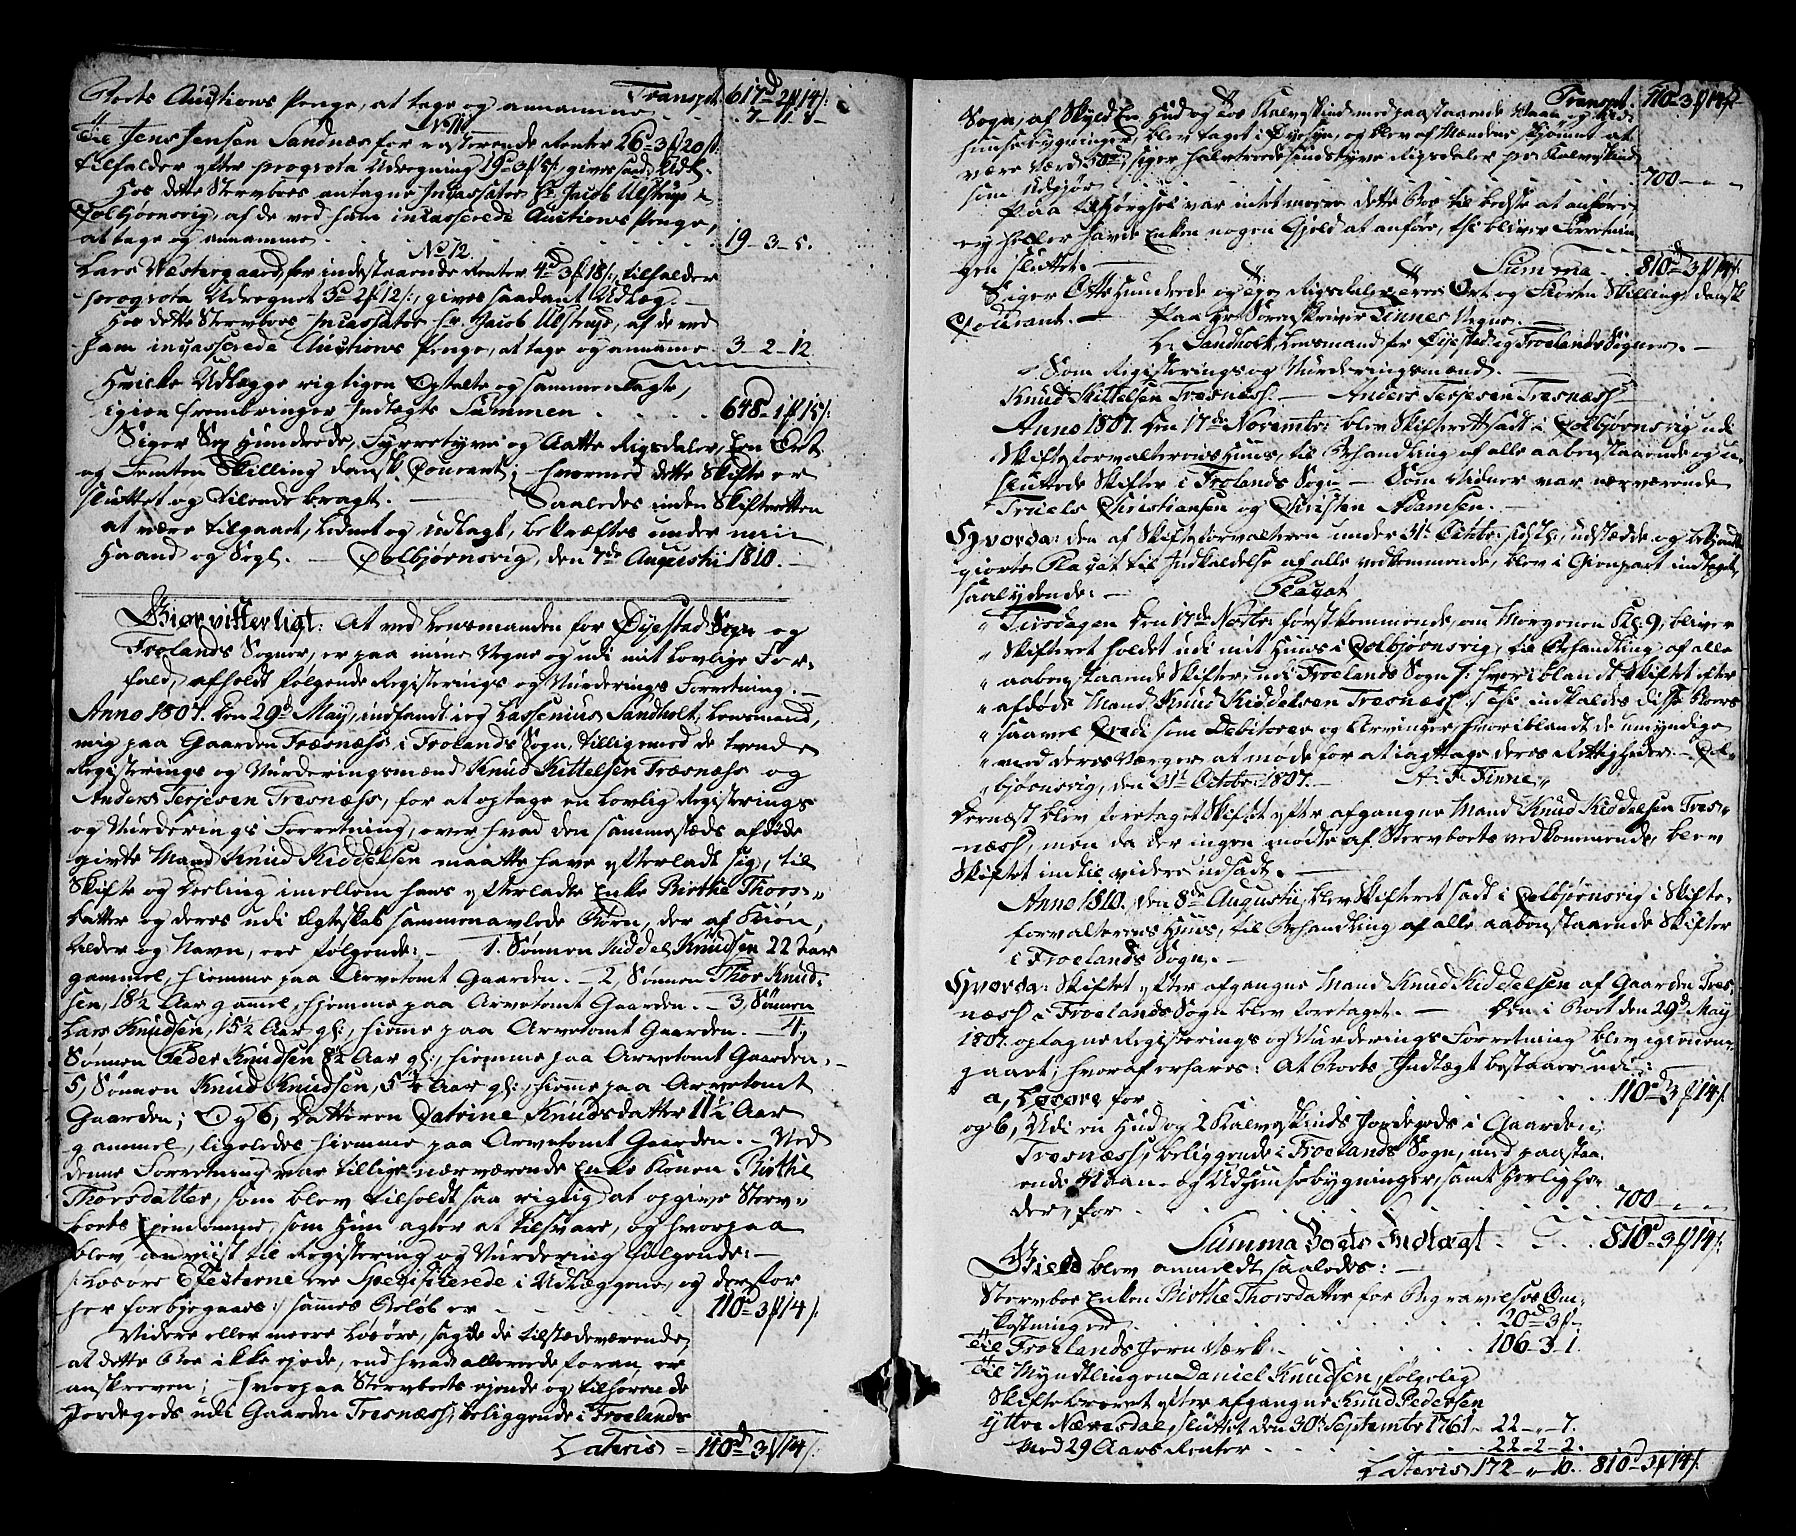 Transpt. 617d 2f 14s.
Boets Auctions Penge, at tage og annamme . . 7 - 11. s -
No 11
Til Jens Jensen Sandnæs for resterende Renter 26 - 3f 20s.
tilfalder efter prograta Udregning 19d 3f 5s, gives saadt Udl.
Hos dette Stervboes antagne Incassator Hr. Jacob Ulstrup i
Colbjørnsvig, af de ved ham incasserede Auctions Penge,
at tage og annamme . . . . . 19 - 3 - 5.
No 12.
Lars Wæstergaard, for indestaaende Renter 4d 3f 18s, tilfalder
prograta Udregnet 3d 2f 12s, gives saadant Udlæg. —
Hos dette Stervboes Incassator Hr. Jacob Ulstrup, af de ved
ham incasserede Auctions Penge, at tage og annamme 3 - 2 - 12.
Hvilke Udlægge rigtigen Optalte og sammenlagte,
igien frembringer Indtægts Summen . . . . 648 - 1f 15s.
Siger Sex Hundrede, Fyrretyve og Aatte Rigsdaler, Een Ort
og Femten Skilling dansk Courant; hvormed dette Skifte er
sluttet og Tilende bragt. — Saaledes inden Skifteretten
at være tilgaaet, lodnet og udlagt, bekræftes under min
Haand og Segl. — Colbjørnsvig, den 7de Augustii 1810. —
Giør vitterligt: At ved Lensmanden for Øyestad Sogn og
Frolands Sogner, er paa mine Vegne og udi mit Lovlige For-
fald, afholdt følgende Registerings og Vurderings Forretning. —
Anno 1807. den 29de May, indfandt jeg Lassenius Sandholt, Lensmand,
mig paa Gaarden Træsnæss i Frolands Sogn, tilligemed de tvende
Registerings og Vurderingsmænd Knud Kittelsen Træsnæss og
Anders Terjesen Tresnæss, for at optage en lovlig Registerings
og Vurderings Forretning, over hvad den sammestæds afdøde
givte Mand Knud Kiddelsen maatte have efterladt sig, til
Skifte og Deeling imellem hans efterladte Enke Birthe Thors-
datter og deres udi Egteskab sammenavlede Børn, der af Kiøn,
Alder og Navn, ere følgende: — 1. Sønnen Kiddel Knudsen 22 Aar
gammel, hiemme paa Arvetomt Gaarden. — 2, Sønnen Thor Knud-
sen, 18½ Aar gammel, hjemme paa Arvetomt Gaarden. — 3, Sønnen
Lars Knudsen, 15½ Aar gl:, hiemme paa Arvetomt Gaarden. — 4,
Sønnen Peder Knudsen 8½ Aar gl:, hiemme paa Arvetomt Gaarden. —
5, Sønnen Knud Knudsen, 5½ Aar gl:, hiemme paa Arvetomt
Gaarden; Og 6, Datteren Catrine Knudsdatter 11½ Aar
gammel, ligeledes hiemme paa Arvetomt Gaarden. — Ved
denne Forretning var tillige nærværende Enke Konen Birthe
Thorsdatter, som blev tilholdt saa rigtig at opgive Sterv-
boets Ejendomme, som hun agter at tilsvare, og hvorpaa
blev anviist til Registering og Vurdering følgende: —
/: Løsøre Efecterne ere Specificerede i Udlæggene, og derfor
her forbigaaes :/ sammes Beløb er — — — 110d 3f 14s.
Videre eller meere Løsøre, sagde de tilstædeværende,
at dette Boe ikke ejede, end hvad allerede foran er
anskreven; hvorpaa Stervboets ejende og tilhørende
Jordegods udi Gaarden Tresnæss, beliggende i Froelands
Lateris = 110d 3f 14s.
Transpt. 110d 3f 14s.
Sogn, af Skyld En Hud og toe Kalveskind med paastaaende Vaan og Ud-
huusebygninger blev taget i Øyesyn, og blev af Mændene skjønnet at
være værd 50d, siger halvtrediesindstyve Rigsdaler per Kalveskind
som Udgjør . . . . . 700 - - -
Paa tilspørgsel var intet meere dette Boe til bedste at anføre,
ey heller havde Enken nogen Gjeld at anføre, thi bliver Forretnin-
gen sluttet. — Summa . 810d 3f 14s.
Siger Otte Hundrede og Tije Rigsdaler, trei Ort og Fiorten Skilling dansk
Courant. — Paa Hr Sorenskriver Finnes Vegne. —
L. Sandholt, Lensmand for Øyestad og Froelands Sogner. —
Som Registerings og Vurderingsmænd. —
Knud Kittelsen Tresnæss. — Anders Terjesen Tresnæss —
Anno 1807. den 17de Novembr: blev Skifteret sadt i Colbjørnsvig udi
Skifteforvalterens Huus, til Behandling af alle aabenstaaende og u-
sluttede Skifter i Frolands Sogn — Som Vidner var nærværende
Truels Christiansen og Christen Adamsen. —
Hvorda: den af Skifteforvalteren under 31te Octbr: sidstl:, udstædde og bekjendt-
giorte Placat til Indkaldelse af alle vedkommende, blev i Gienpart indtaget,
saalydende: — Placat
" Tirsdagen den 17de Novbr: førstkommende, om Morgenen Kl: 9, bliver
" Skifteret holdet udi mit Huus i Colbjørnsvig, til Behandling af alle
" aabenstaaende Skifter udi Froelands Sogn /: hvoriblandt Skiftet efter
" afdøde Mand Knud Kiddelsen Tresnæss :/ thi indkaldes disse Boers
" saavel Credi- som Debitorer og Arvinger, hvoriblandt de umyndige
" med deres Værger at møde for at iagttage deres Rettigheder. — Col-
" bjørnsvig, den 31te Octobr 1807. — A: F: Finne "
Dernæst blev foretaget Skiftet efter afgangne Mand Knud Kiddelsen Tres-
næss, men da der ingen mødte af Stervboets vedkommende, blev
Skiftet indtil videre udsadt. —
Anno 1810. den 8de Augustii, blev Skifteret sadt i Colbjørnsvig i Skifte-
forvalterens Huus, til Behandling af alle aabenstaaende Skifter
i Froelands Sogn. —
Hvorda: Skiftet efter afgangne Mand Knud Kiddelsen af Gaarden Tres-
næss i Froelands Sogn blev foretaget. — Den i Boet den 29de May
1807. optagne Registerings og Vurderings Forretning blev igiennem-
gaaet; hvoraf erfares: At Boets Indtægt bestaaer udi:
a, Løsøre for . . . . . 110d 3f 14s.
og 6, Udi en Hud og 2 Kalveskinds Jordegods i Gaarden
Tresnæss, beliggende i Froelands Sogn, med paastaa-
ende Vaan- og Udhuusebygninger, samt Herlighe-
der, for . . . . . 700 - - -
Summa Boets Indtægt . . . 810d 3f 14s.
Gield blev anmeldt saaledes: —
Stervboe Enken Birthe Thorsdatter for Begravelses Om-
kostninger . . . . . 20d 3f -
Til Froelands Jern Værk . . . . . 106 - 3 - 1.
Til Myndtlingen Daniel Knudsen, følgelig
Skiftebrevet efter afgangne Knud Pedersen
yttre Næresdal, sluttet den 30te September 1761 - 22 - " - 7.
Med 29 Aars Renter . . . . 22 - 2 - 2.
Lateris 172 - " - 10. 810d 3f 14s.